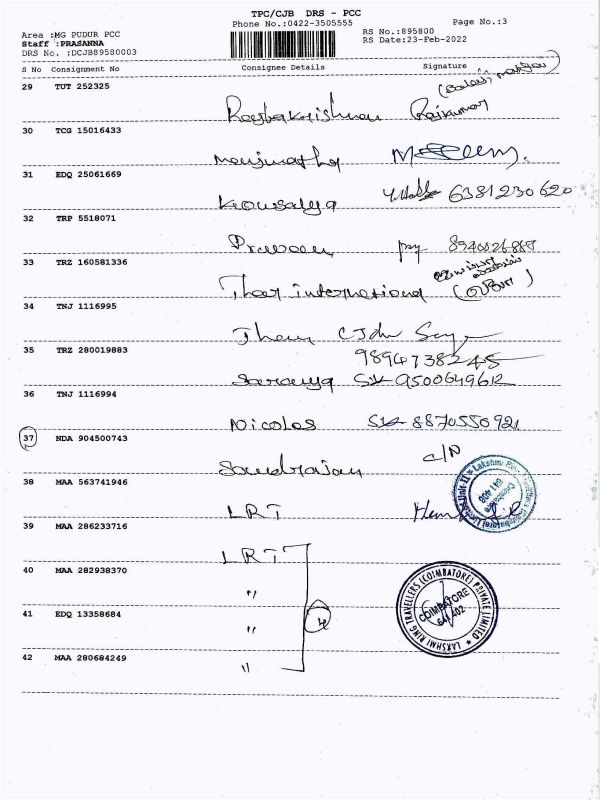 TPC/CJB DRS - PCC
Phone No.:0422-3505555
Page No.:3
Area :MG PUDUR PCC
Staff :PRASANNA
DRS No. :DCJB89580003
RS No.:895800
RS Date:23-Feb-2022
S No Consignment No Consignee Details Signature
29 TUT 252325
Rajkumar
30 TCG 15016433
31 EDQ 25061669
Kowsalya 6381230620
32 TRP 5518071
Praveen
33 TRZ 160581336
Thar International
34 TNJ 1116995
35 TRZ 280019883
9894738245
Saranya 9500649612
36 TNJ 1116994
Nicolas 8870550921
37 NDA 904500743
Soundrajan c/n
38 MAA 563741946
LRT
39 MAA 286233716
LRT
40 MAA 282938370
"
41 EDQ 13358684
" 4
42 MAA 280684249
"
LAKSHMI RING TRAVELLERS (COIMBATORE) PRIVATE LIMITED
COIMBATORE
641 402